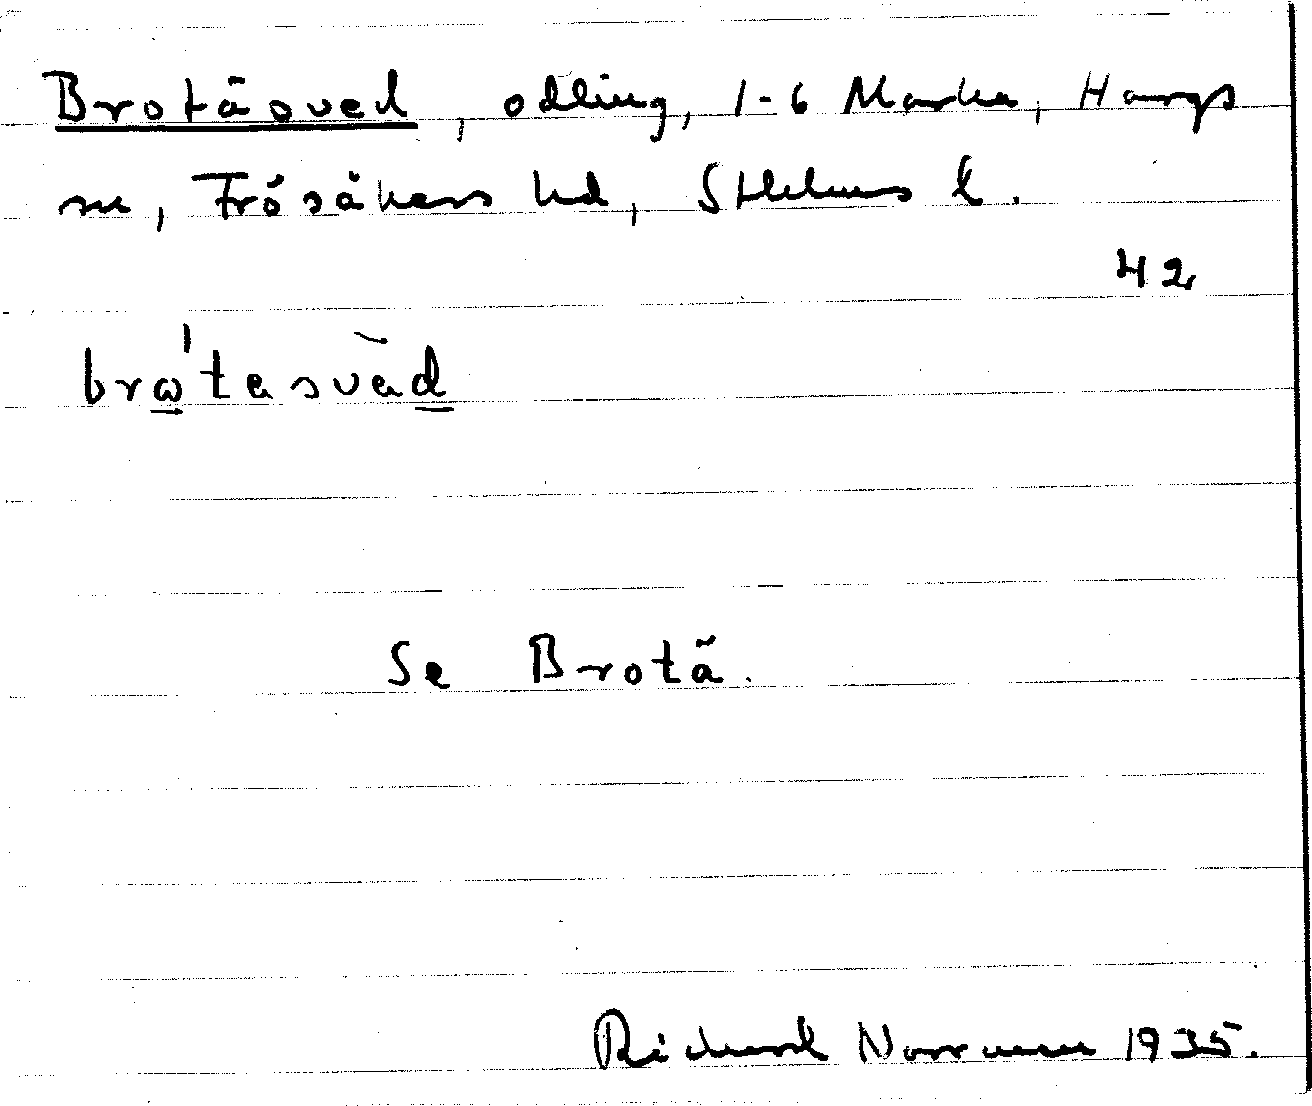 Brotäsved, odling, 1-6 Marka, Hargs
sn, Frösåkers hd, Sthlms l.
42
Se Brotä.
Richard Norrman 1935.